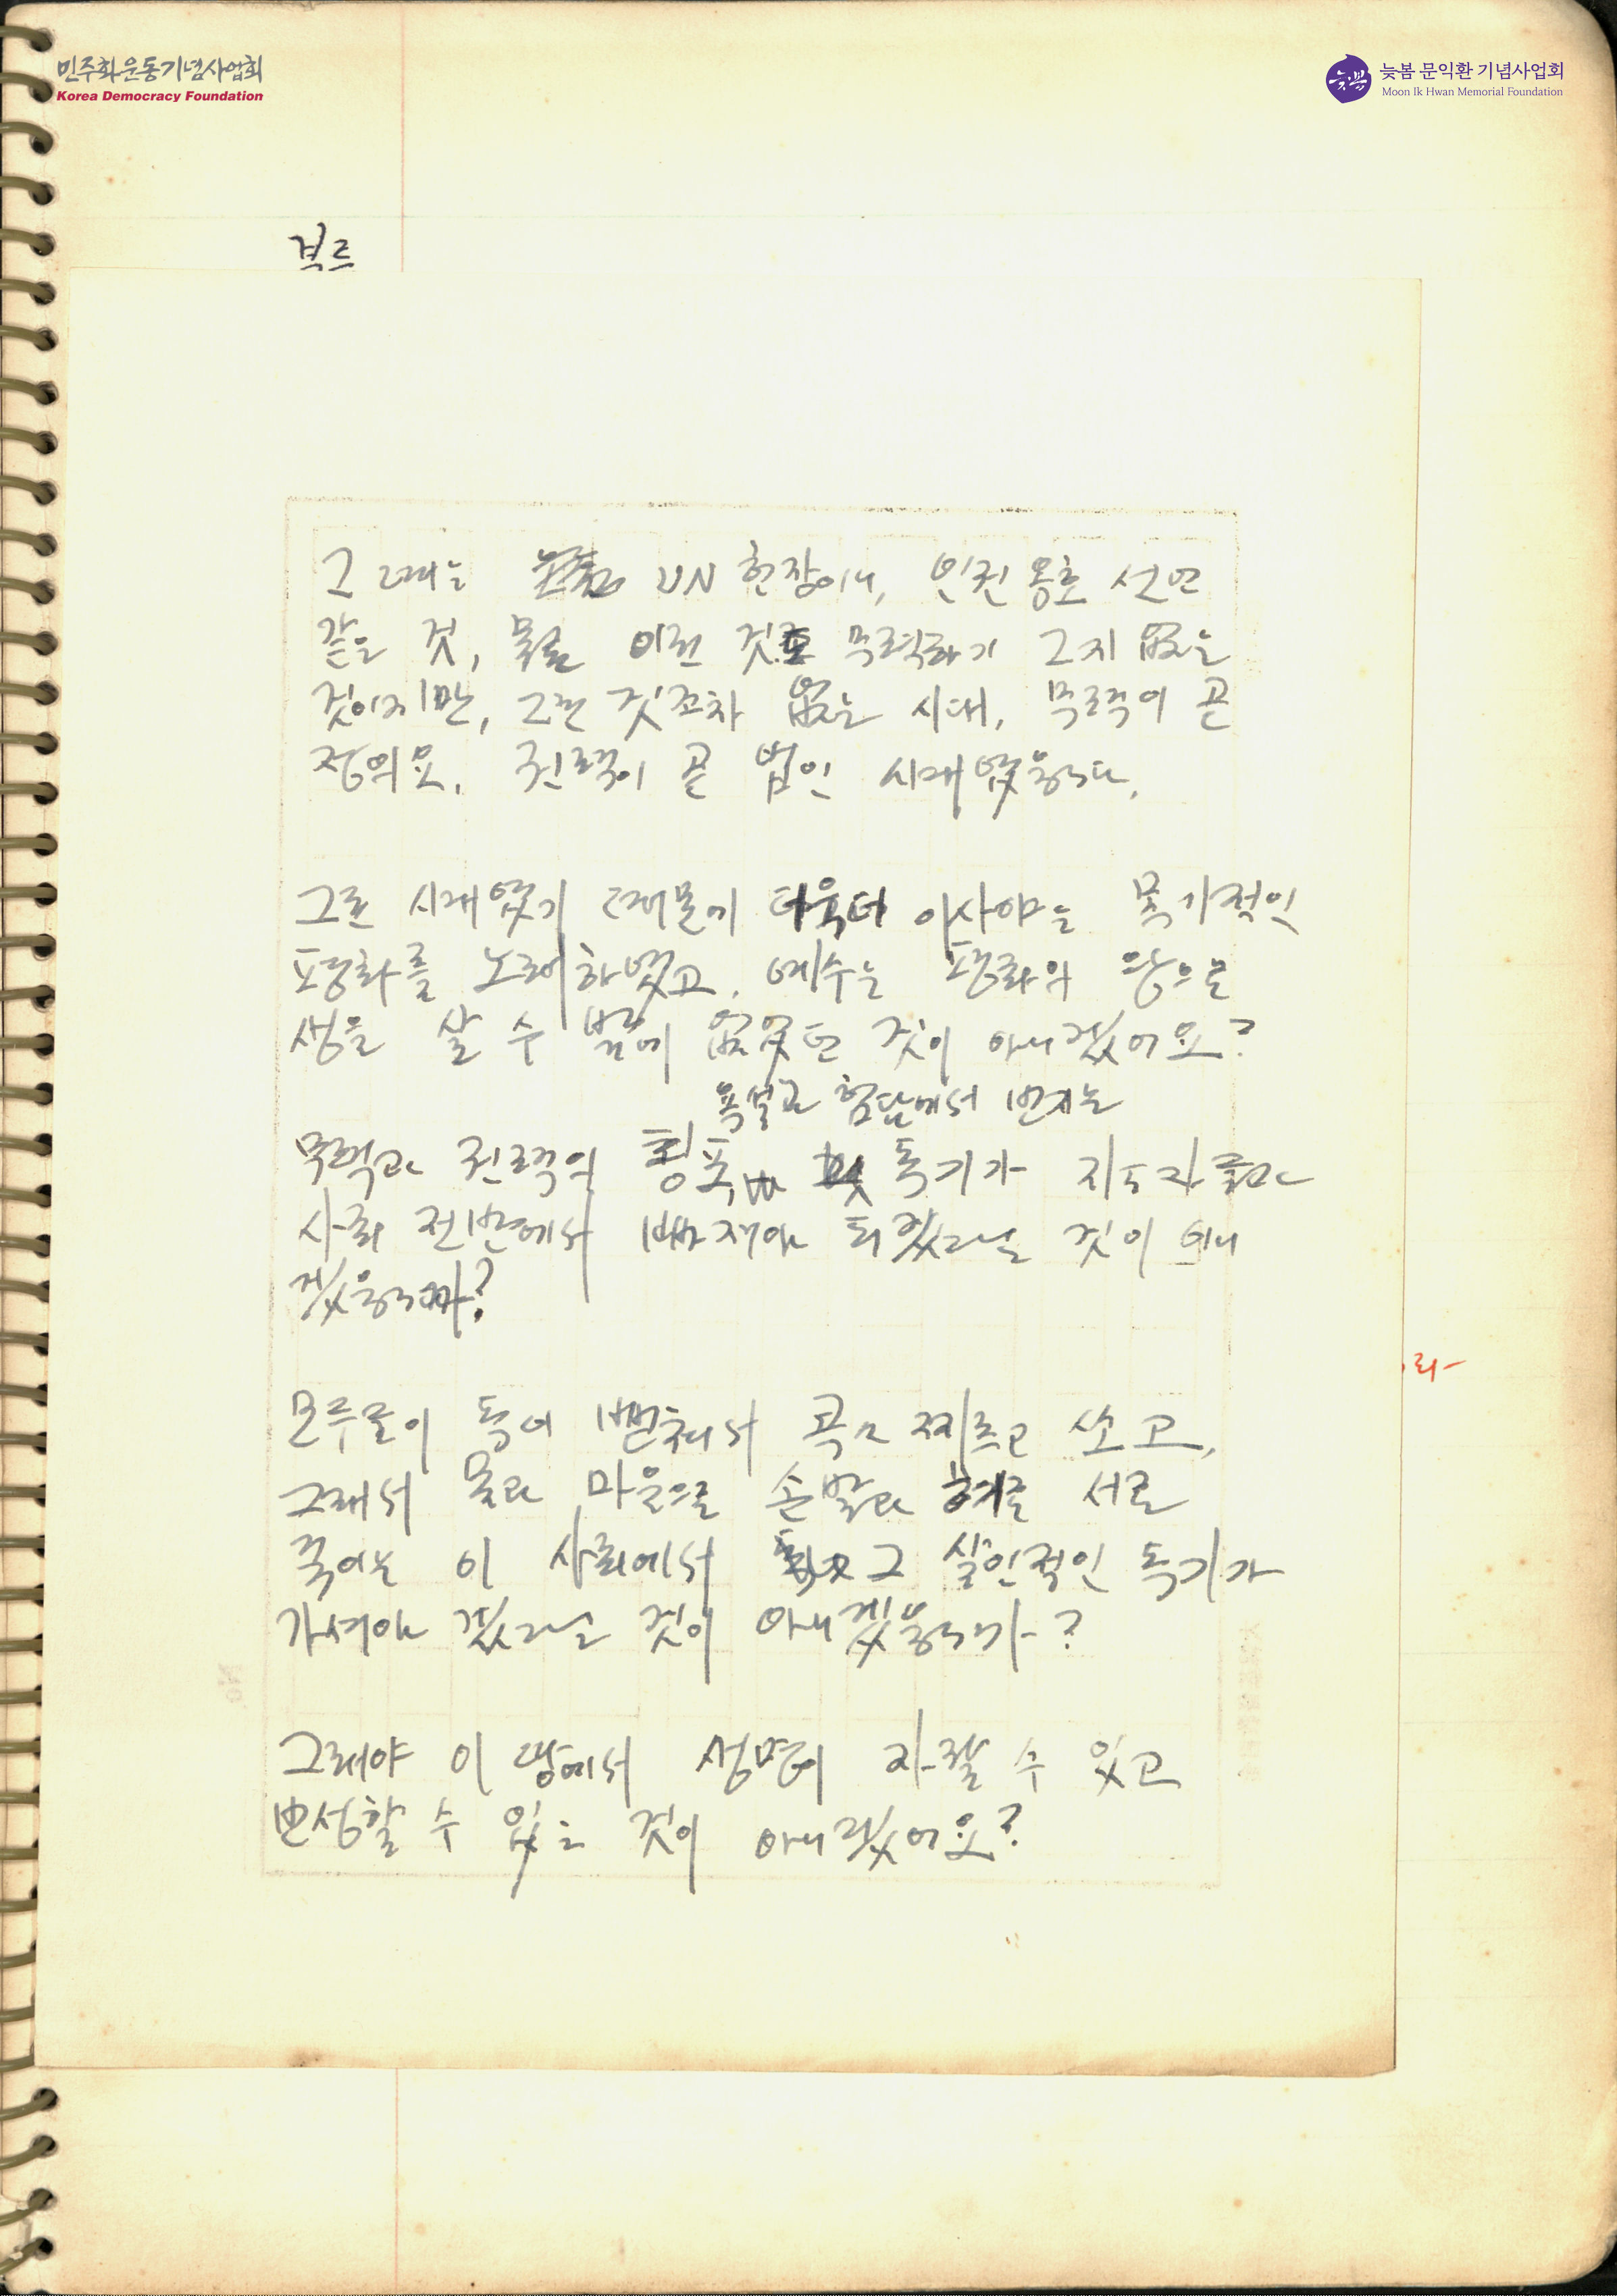 민주화운동기념사업회
Korea Democracy Foundation
늦봄 문익환 기념사업회
Moon Ik Hwan Memorial Foundation
늦봄
그 때는 UN 헌장이나, 인권 옹호 선언
같은 것, 물론 이런 것도 무력하기 그지 없는
것이지만, 그런 것조차 없는 시대, 무력이 곧
정의요, 권력이 곧 법인 시대였읍니다.
그런 시대였기 때문에 더욱더 이사야는 목가적인
평화를 노래하였고, 예수는 평화의 왕으로
생을 살 수 밖에 없었던 것이 아니겠어요?
욕설과 험담에서 번지는
무력과 권력의 횡포, 독기가 지도자들과
사회 전반에서 빠져야 되겠다는 것이 아니
겠읍니까?
모두들이 독이 뻗쳐서 콕콕 찌르고 쏘고,
그래서 몸과 마음으로 손발과 혀로 서로
죽이는 이 사회에서 그 살인적인 독기가
가셔야 겠다는 것이 아니겠읍니까?
그래야 이 땅에서 생명이 자랄 수 있고
번성할 수 있는 것이 아니겠어요?